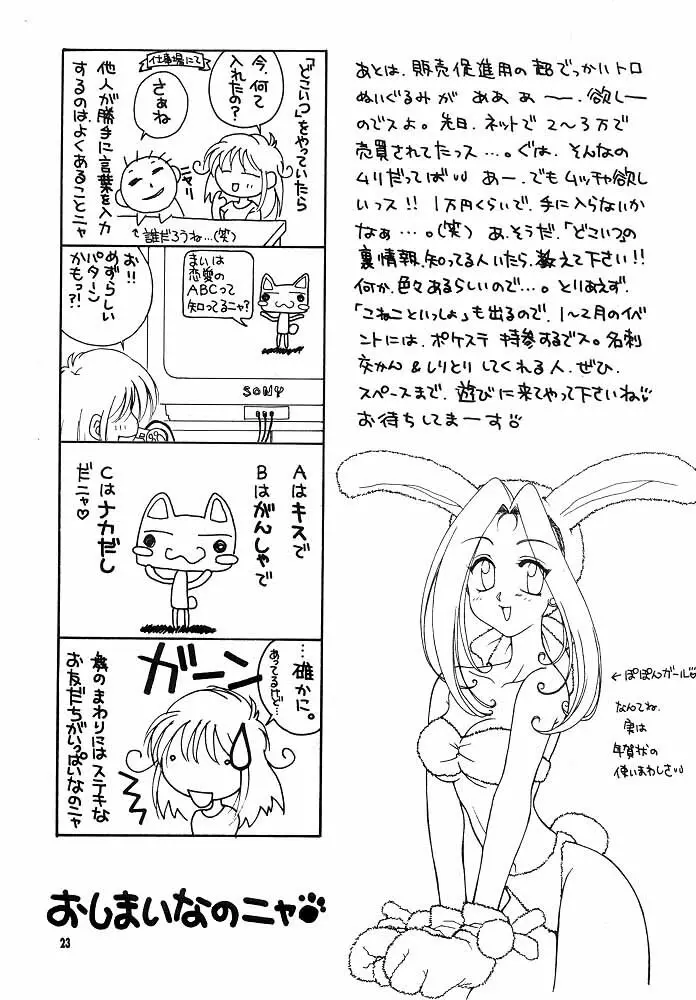 「どこいつ」をやっていたら
仕事場にて
今、何て
入れたの？
さぁね
他人が勝手に言葉を入力
するのは、よくあることニャ
↑誰だろうね…(笑)
まいは
恋愛の
ABCって
知ってるニャ？
お!!
めずらしい
パターン
かもっ?!
SONY
Aはキスで
Bはがんしゃで
Cはナカだし
だニャ♡
…確かに。
あってるけど…
ガーン
僕のまわりにはステキな
お友だちがいっぱいなのニャ
おしまいなのニャ
23
あとは、販売促進用の超でっかいトロ
ぬいぐるみが ああ ぁ 〜 、欲しー
のでスよ。先日、ネットで 2〜3万で
売買されてたっス…。ぐは、そんなの
ムリだってばいい あー、でもムッチャ欲し
いっス!! 1万円くらいで、手に入らないか
なぁ…。(笑) あ、そうだ、「どこいつ」の
裏情報、知ってる人いたら、教えて下さい!!
何か、色々あるらしいので…。とりあえず、
「こねこといっしょ」も出るので、1〜2月のイベ
ントには、ポケステ 持参するでス。名刺
交かん & しりとり してくれる人、ぜひ
スペースまで、遊びに来てやって下さいね♡
お待ちしてまーす♡
←ぽぽんガール♡
なんてね、
実は
年賀状の
使いまわしさ